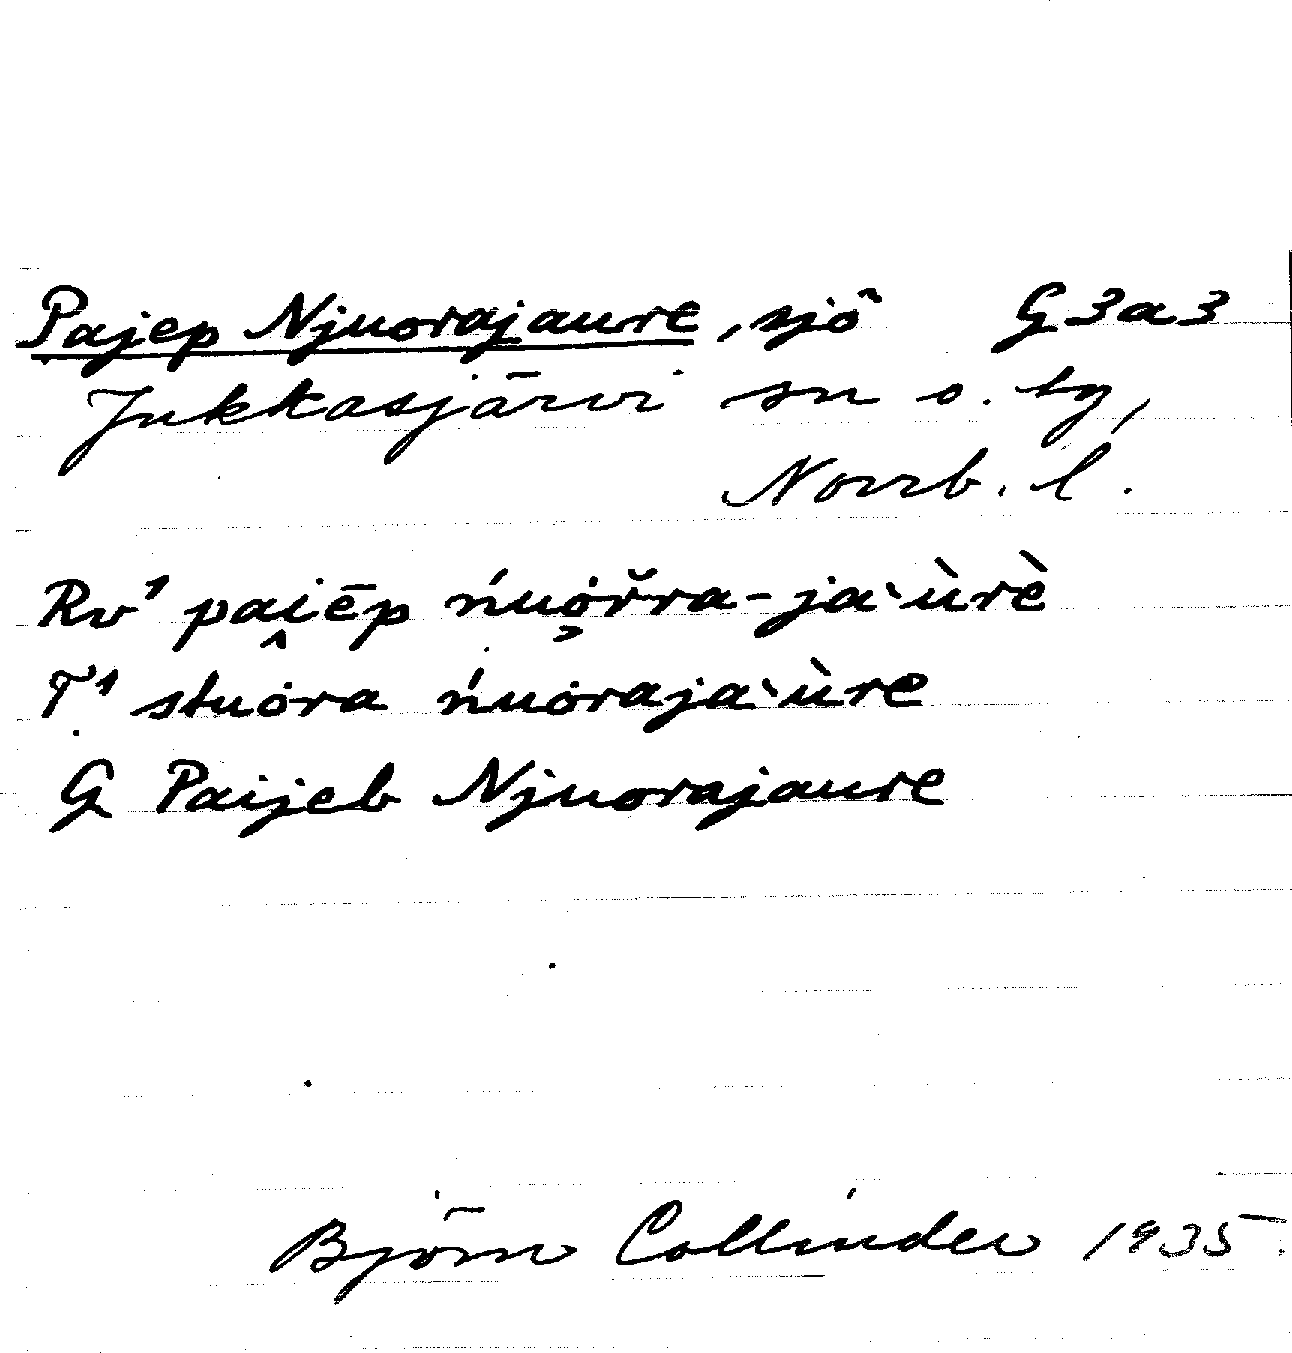 Pajep Njuorajaure, sjö G3a3
Jukkasjärvi sn o. tg,
Norrb. l.
Rv¹ pai̭ēp ńuȯ̜řra-ja`ùrè
T¹ stuȯra ńuȯraja`ùre
G Paijeb Njuorajaure
Björn Collinder 1935.